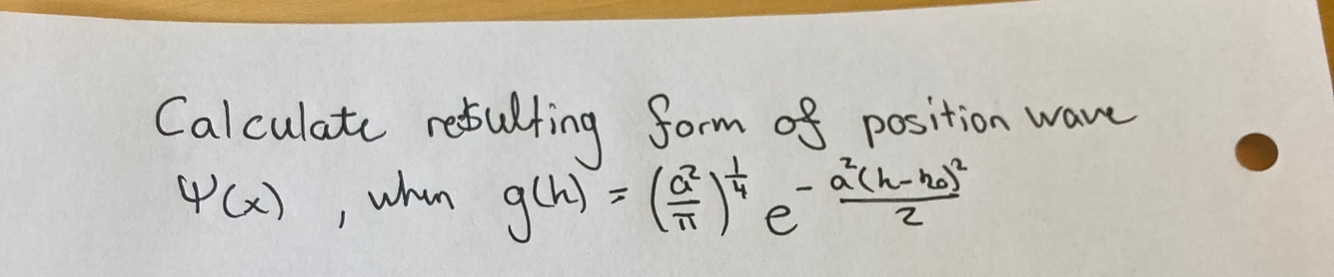 Calculate resulting form of position wave
Ψ(x) , when g(k) = (a²/π)^(1/4) e^(- a²(k-k₀)²/2)